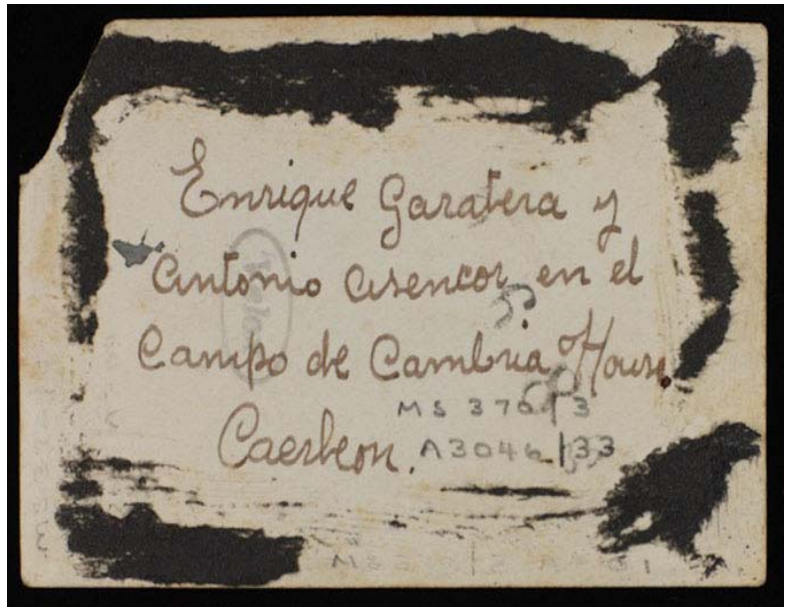 Enrique Garatera y
Antonio Asencor en el
Campo de Cambria House.
MS 370/3
Caerleon. A3046/33